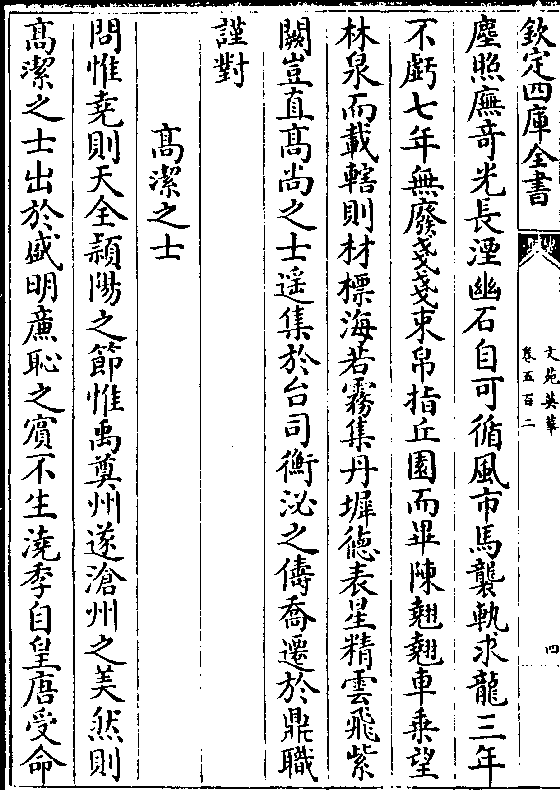 欽定四庫全書
文苑英華
卷五百二
四
塵照廡竒光長湮幽石自可循風市馬襲軌求龍三年
不虧七年無廢戔戔束帛指丘園而畢陳翹翹車乗望
林泉而載轄則材標海若霧集丹墀德表星精雲飛紫
闕豈直髙尚之士遥集於台司衡泌之儔喬遷於鼎職
謹對
髙潔之士
問惟堯則天全潁陽之節惟禹奠州遂滄州之美然則
髙潔之士出於盛明亷恥之賔不生澆季自皇唐受命